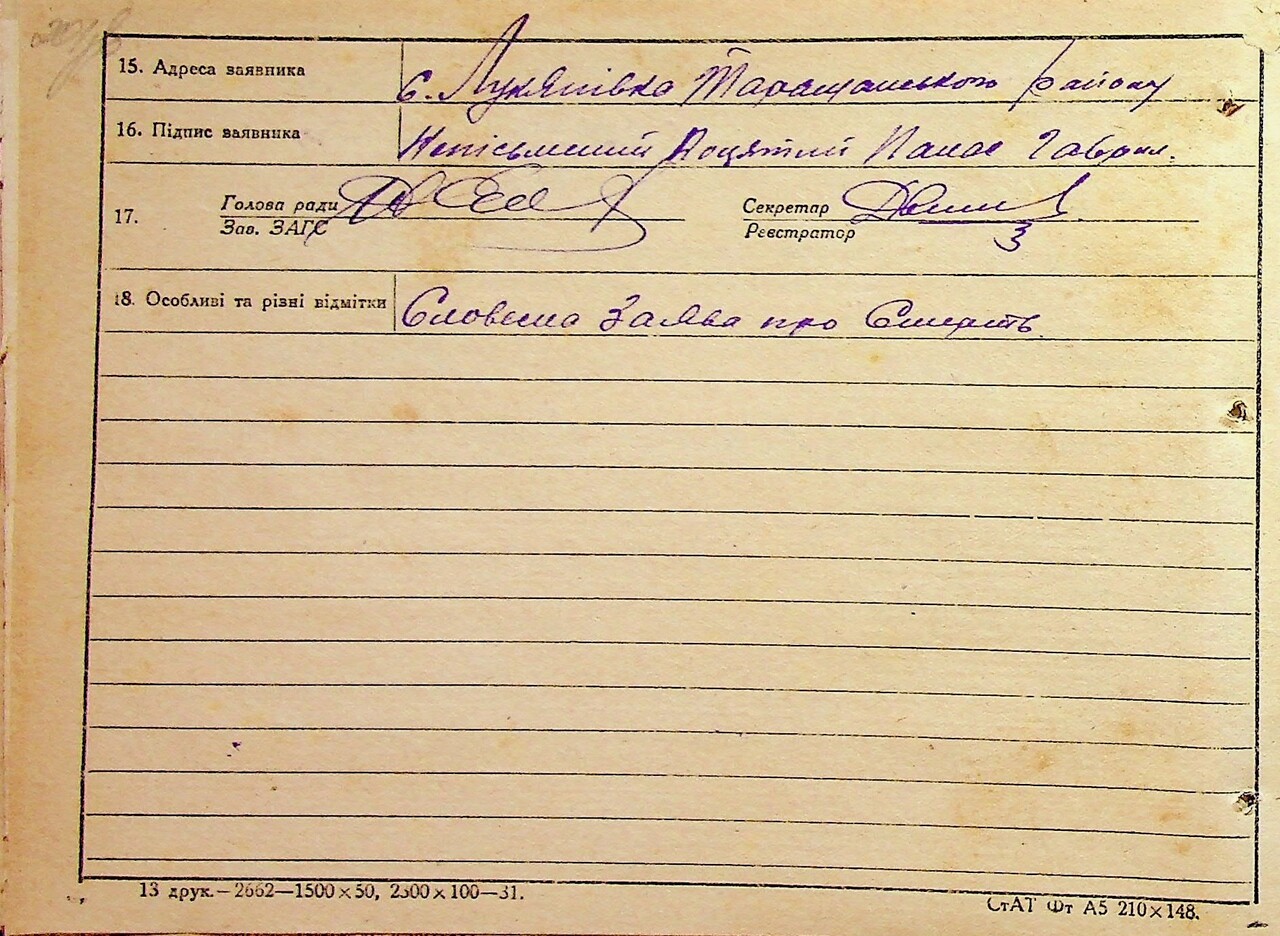 15. Адреса заявника с. Лукянівка Таращанського району
16. Підпис заявника Неписьмений Панас Гаврил.
17. Голова ради Секретар
Зав. ЗАГС Реєстратор
18. Особливі та різні відмітки Словесна Заява про Смерть
13 друк.—2662—1500×50, 2300×100—31. СтАТ Фт А5 210×148.